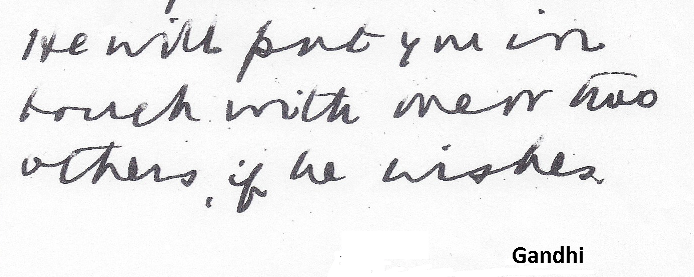 He will put you in
touch with one or two
others, if he wishes.
Gandhi